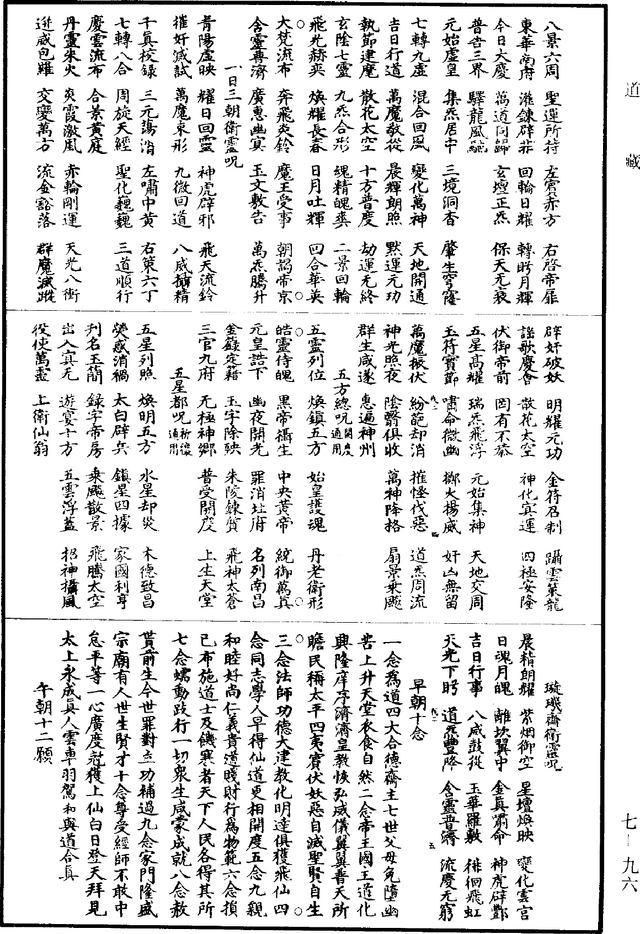 道藏
七—九六
八景六周 聖運所持 左霄赤方 右啓帝扉
東華南府 滌鍊辟非 回輪日耀 轉眄月輝
今日大慶 萬道同歸 玄壇正炁 保天元
普告三界 驛龍風馳
元始虛皇 集炁居中 三境洞杳 肇生穹窿
七轉九虛 混合回風 變化萬神 天地開通
吉日行道 萬魔敬從 晨輝朗照 默運元功
執節建麾 散花太空 十方普度 劫運无終
玄陰七靈 九炁合形 魂精魄爽 二景回輪
飛光赫奕 煥耀長春 日月吐輝 四合華英
大梵流布 奔飛炎鈴 魔王受事 朝謁帝京
含靈再濟 廣惠幽冥 玉文敷告 萬炁騰升
一日三朝衛靈呪
青陽虛映 耀日回靈 神虎辟邪 飛天流鈴
摧奸滅試 萬魔束形 九微回道 八威攝精
千真校錄 三元蕩消 左嘯中黃 右策六丁
七轉八合 周旋天經 聖化巍巍 三道順行
慶雲流布 合景黃庭
丹靈朱火 炎霞激風 赤輪剛運 天光八衝
逆威包羅 交變萬方 流金豁落 群魔滅蹤
辟奸破妖 明耀元功 金符召制 躡雲策龍
謠歌慶會 散花太空 神化冥運 四極安隆
伏御帝前 罔有不恭
五星高耀 瑞炁飛浮 元始集神 天地交周
玉符寶節 嘯命微幽 擲火揚威 奸凶無留
萬魔振伏 紛葩却消 摧怪伐惡 道炁周流
神光照夜 陰翳俱收 萬神降格 扇景乘飈
群生咸遂 惠遍神州
五方總呪 開度通用
五靈列位 煥鎮五方 始皇護魂 丹老衛形
皓靈侍魄 黑帝攝生 中央黃帝 統御萬真
元皇誥下 幽夜開光 罪消北府 名列南昌
金籙定籍 玉字除殃 朱陵鍊質 飛神太蒼
三官九府 无極神鄉 普受開度 上生天堂
五星都呪 祈禳通用
五星列照 煥明五方 水星却災 木德致昌
熒惑消禍 太白辟兵 鎮星四據 家國利亨
刋名玉簡 錄字帝房 乘飈散景 飛騰太空
出入冥无 遊宴十方 五雲浮蓋 招神攝風
役使萬靈 上衛仙翁
璇璣齋衛靈呪
晨精朗耀 紫烟御空 星壇煥映 變化雲宮
日魂月魄 離坎翼中 金真嘯命 神虎辟酆
吉日行事 八威敬從 玉華羅敷 徘徊飛虹
天光下眄 道炁豐降 含靈普濟 流慶无窮
早朝十念
一念爲道四大合德齋主七世父母免墮幽
苦上升天堂衣食自然二念帝王國主道化
興隆庠序濟濟皇教恢弘威儀翼翼普天所
瞻民稱太平四夷賓伏妖惡自滅聖賢自生
三念法師功德大建教化明達俱獲飛仙四
念同志學人早得仙道更相開度五念九親
和睦好尚仁義貴道賤財行爲物範六念損
己布施道士及饑寒者天下人民各得其所
七念蠕動跂行一切衆生咸蒙成就八念赦
貰前生今世罪對立功補過九念家門隆盛
宗廟有人世生賢才十念尊受經師不敢中
怠平等一心廣度尅獲上仙白日登天拜見
太上永成真人雲車羽駕和與道合真
午朝十二願